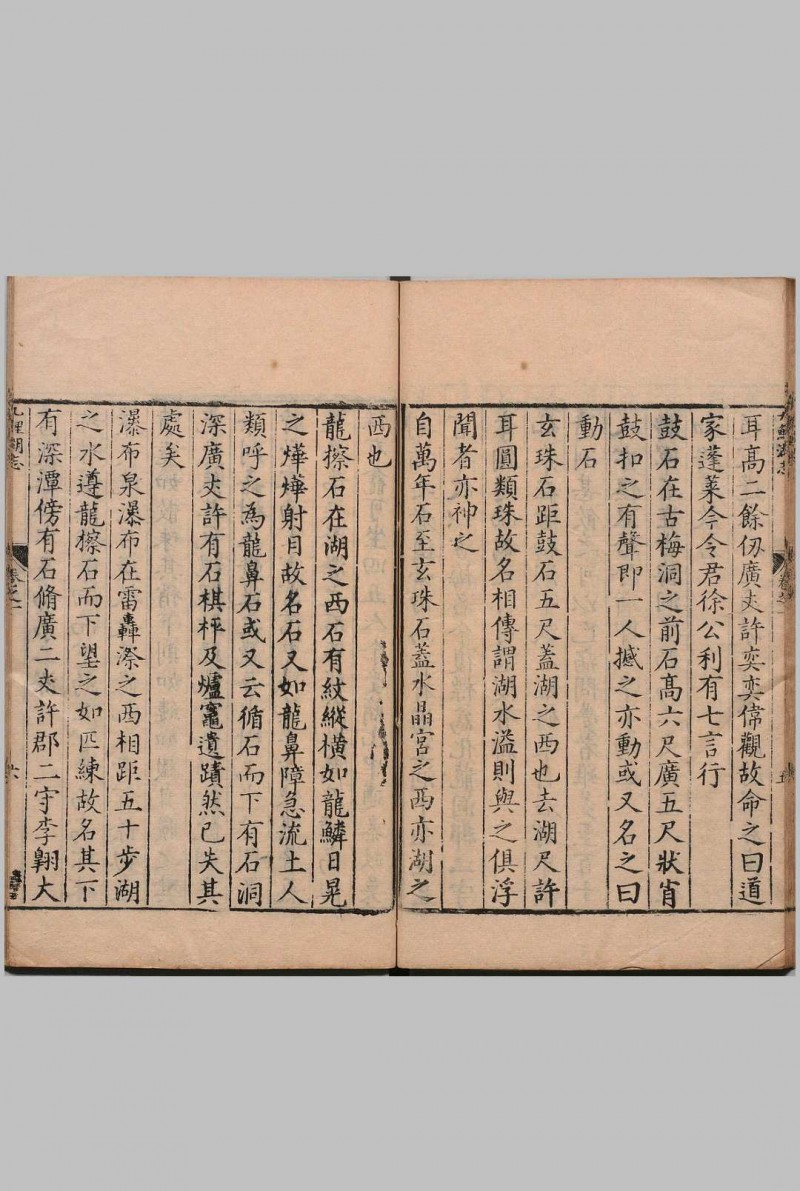 耳高二餘仞廣𠀋許奕奕偉觀故命之曰道
家蓬萊今令君徐公利有七言行
鼓石在古梅洞之前石高六尺廣五尺狀肖
鼓扣之有聲即一人撼之亦動或又名之曰
動石
玄珠石距鼓石五尺蓋湖之西也去湖尺許
耳圓類珠故名相傳謂湖水溢則與之俱浮
聞者亦神之
自萬年石至玄珠石蓋水晶宮之西亦湖之
西也
龍擦石在湖之西石有紋縱橫如龍鱗日晃
之燁燁射目故名石又如龍鼻障急流土人
類呼之為龍鼻石或又云循石而下有石洞
深廣𠀋許有石棋枰及爐竈遺蹟然已失其
處矣
瀑布泉瀑布在雷轟漈之西相距五十步湖
之水遵龍擦石而下望之如匹練故名其下
有深潭傍有石脩廣二𠀋許郡二守李翱大
九鯉湖志
卷之一
六